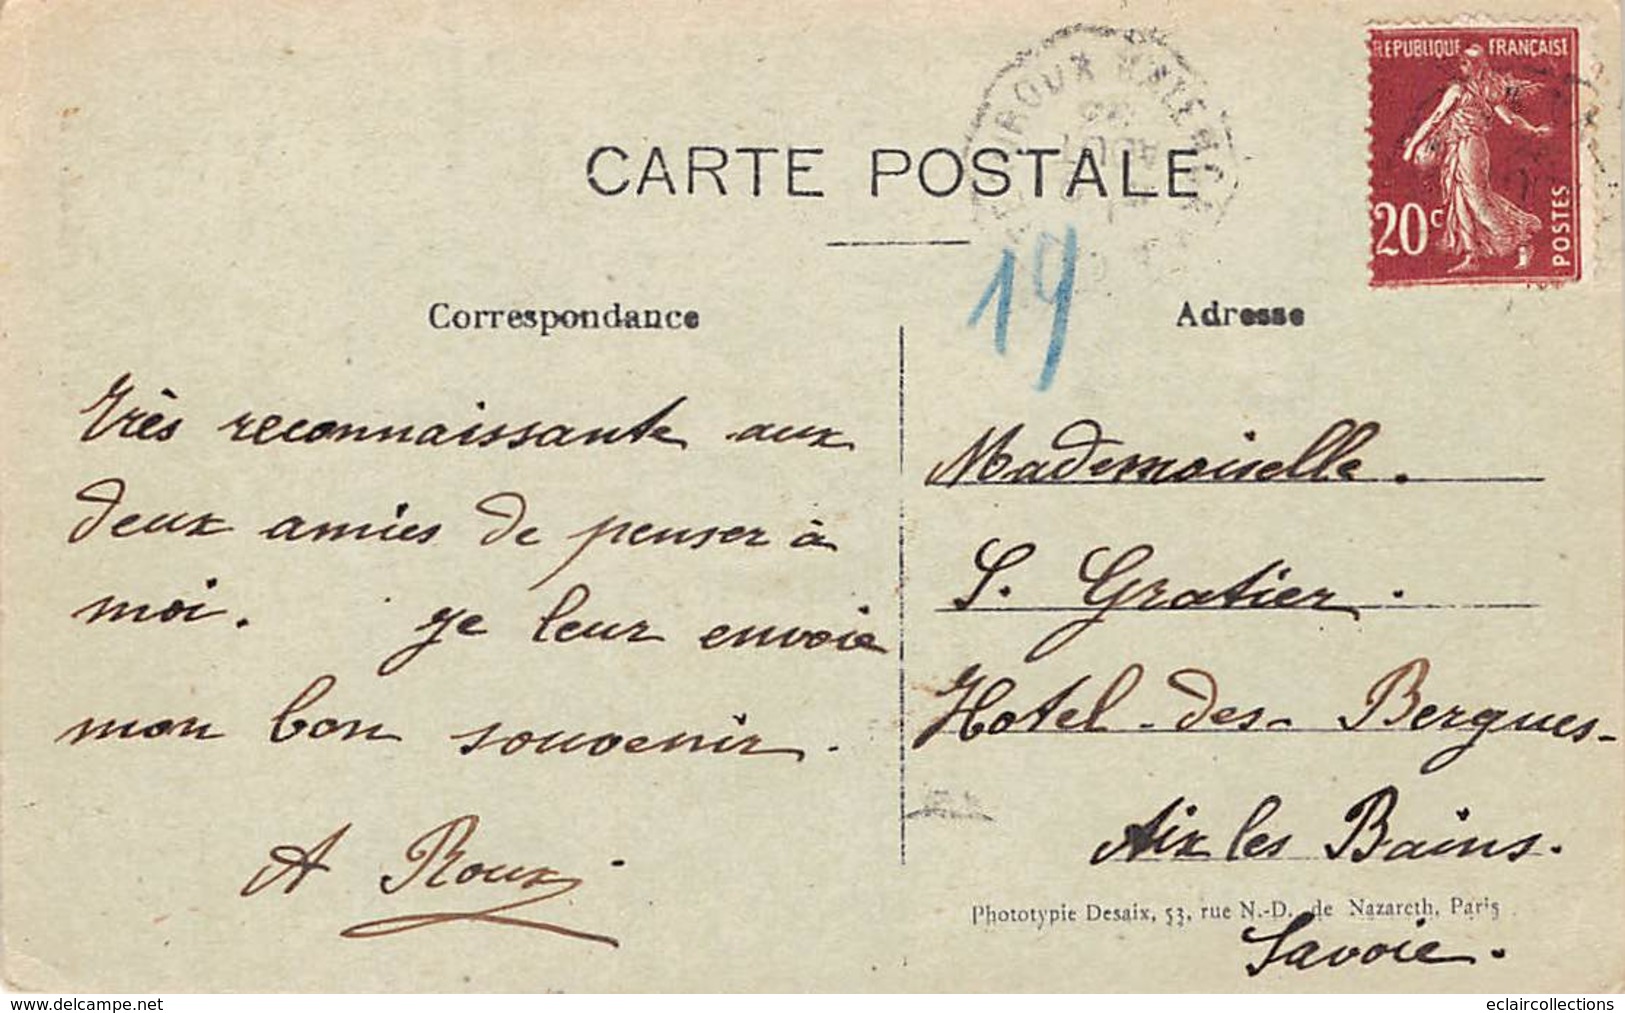 REPUBLIQUE FRANÇAISE
20c
POSTES
CARTE POSTALE
19
Correspondance
Adresse
Très reconnaissante aux
deux amies de penser à
moi. Je leur envoie
mon bon souvenir.
A Roux
Mademoiselle.
S. Gratier.
Hotel-des-Bergues-
Aix les Bains.
Phototypie Desaix, 53, rue N.-D. de Nazareth, Paris
Savoie.
www.delcampe.net
eclaircollections